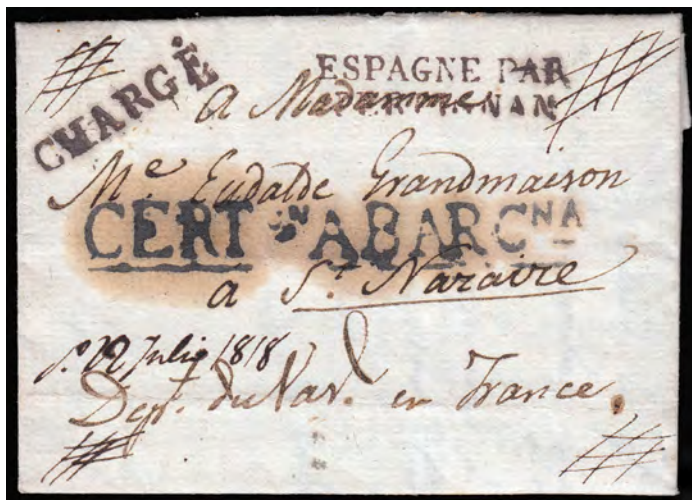 CHARGÉ
ESPAGNE PAR
PERPIGNAN
A Madamme
Me. Eudalde Grandmaison
CERTON ABARCNA
a St. Nazaire
12 Julio 1818
Dep. du Var. en France.